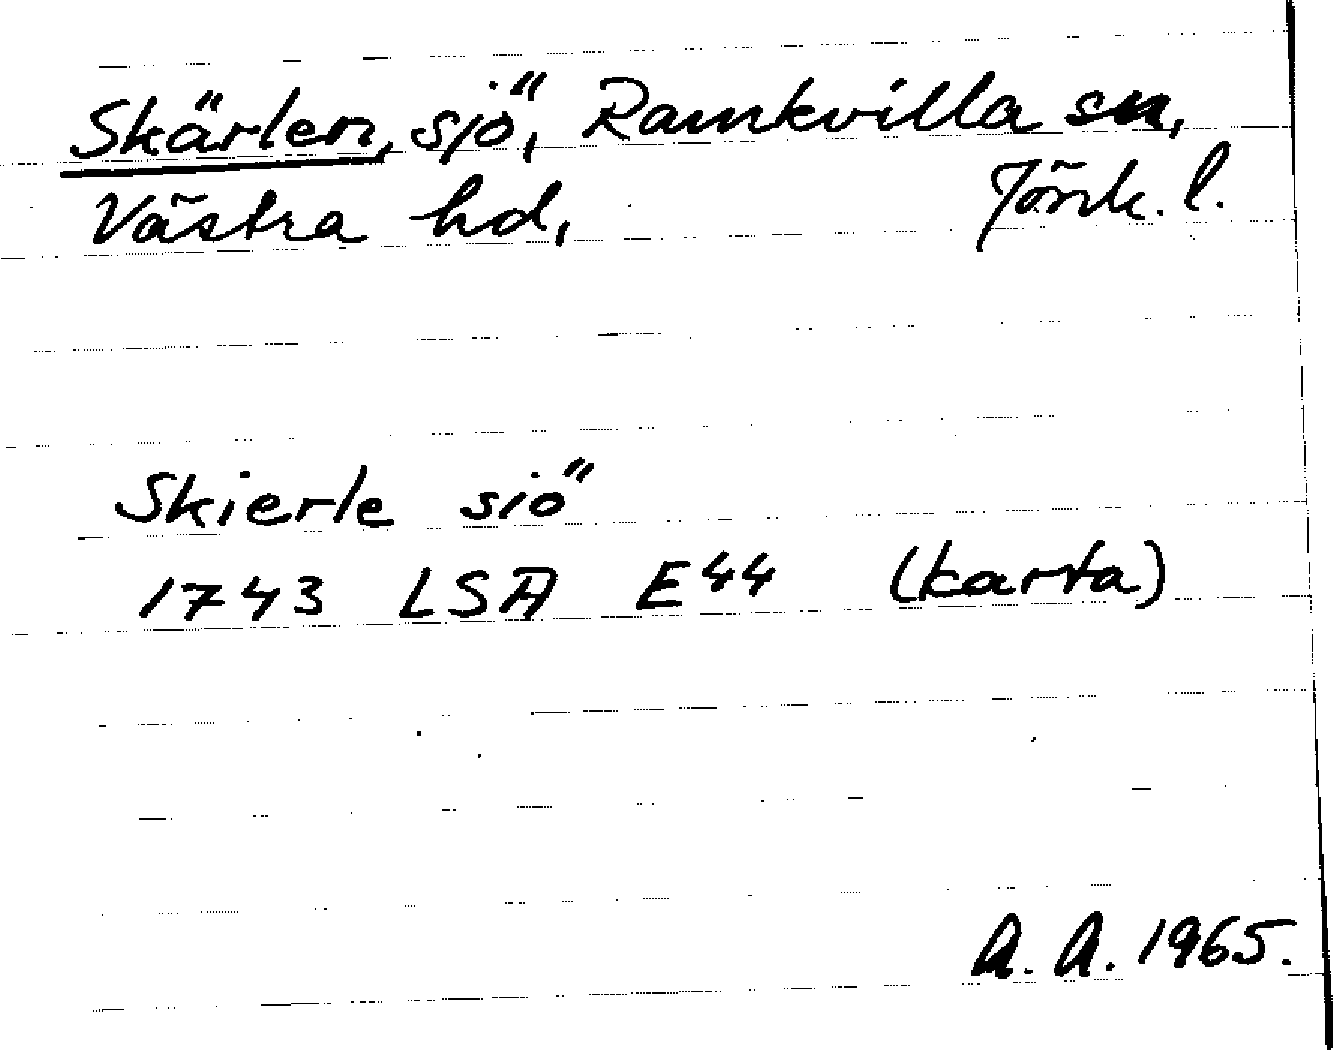 Skärlen, sjö, Ramkvilla sn,
Västra hd, Jönk. l.
Skierle siö
1743 LSA E44 (karta)
A. A. 1965.